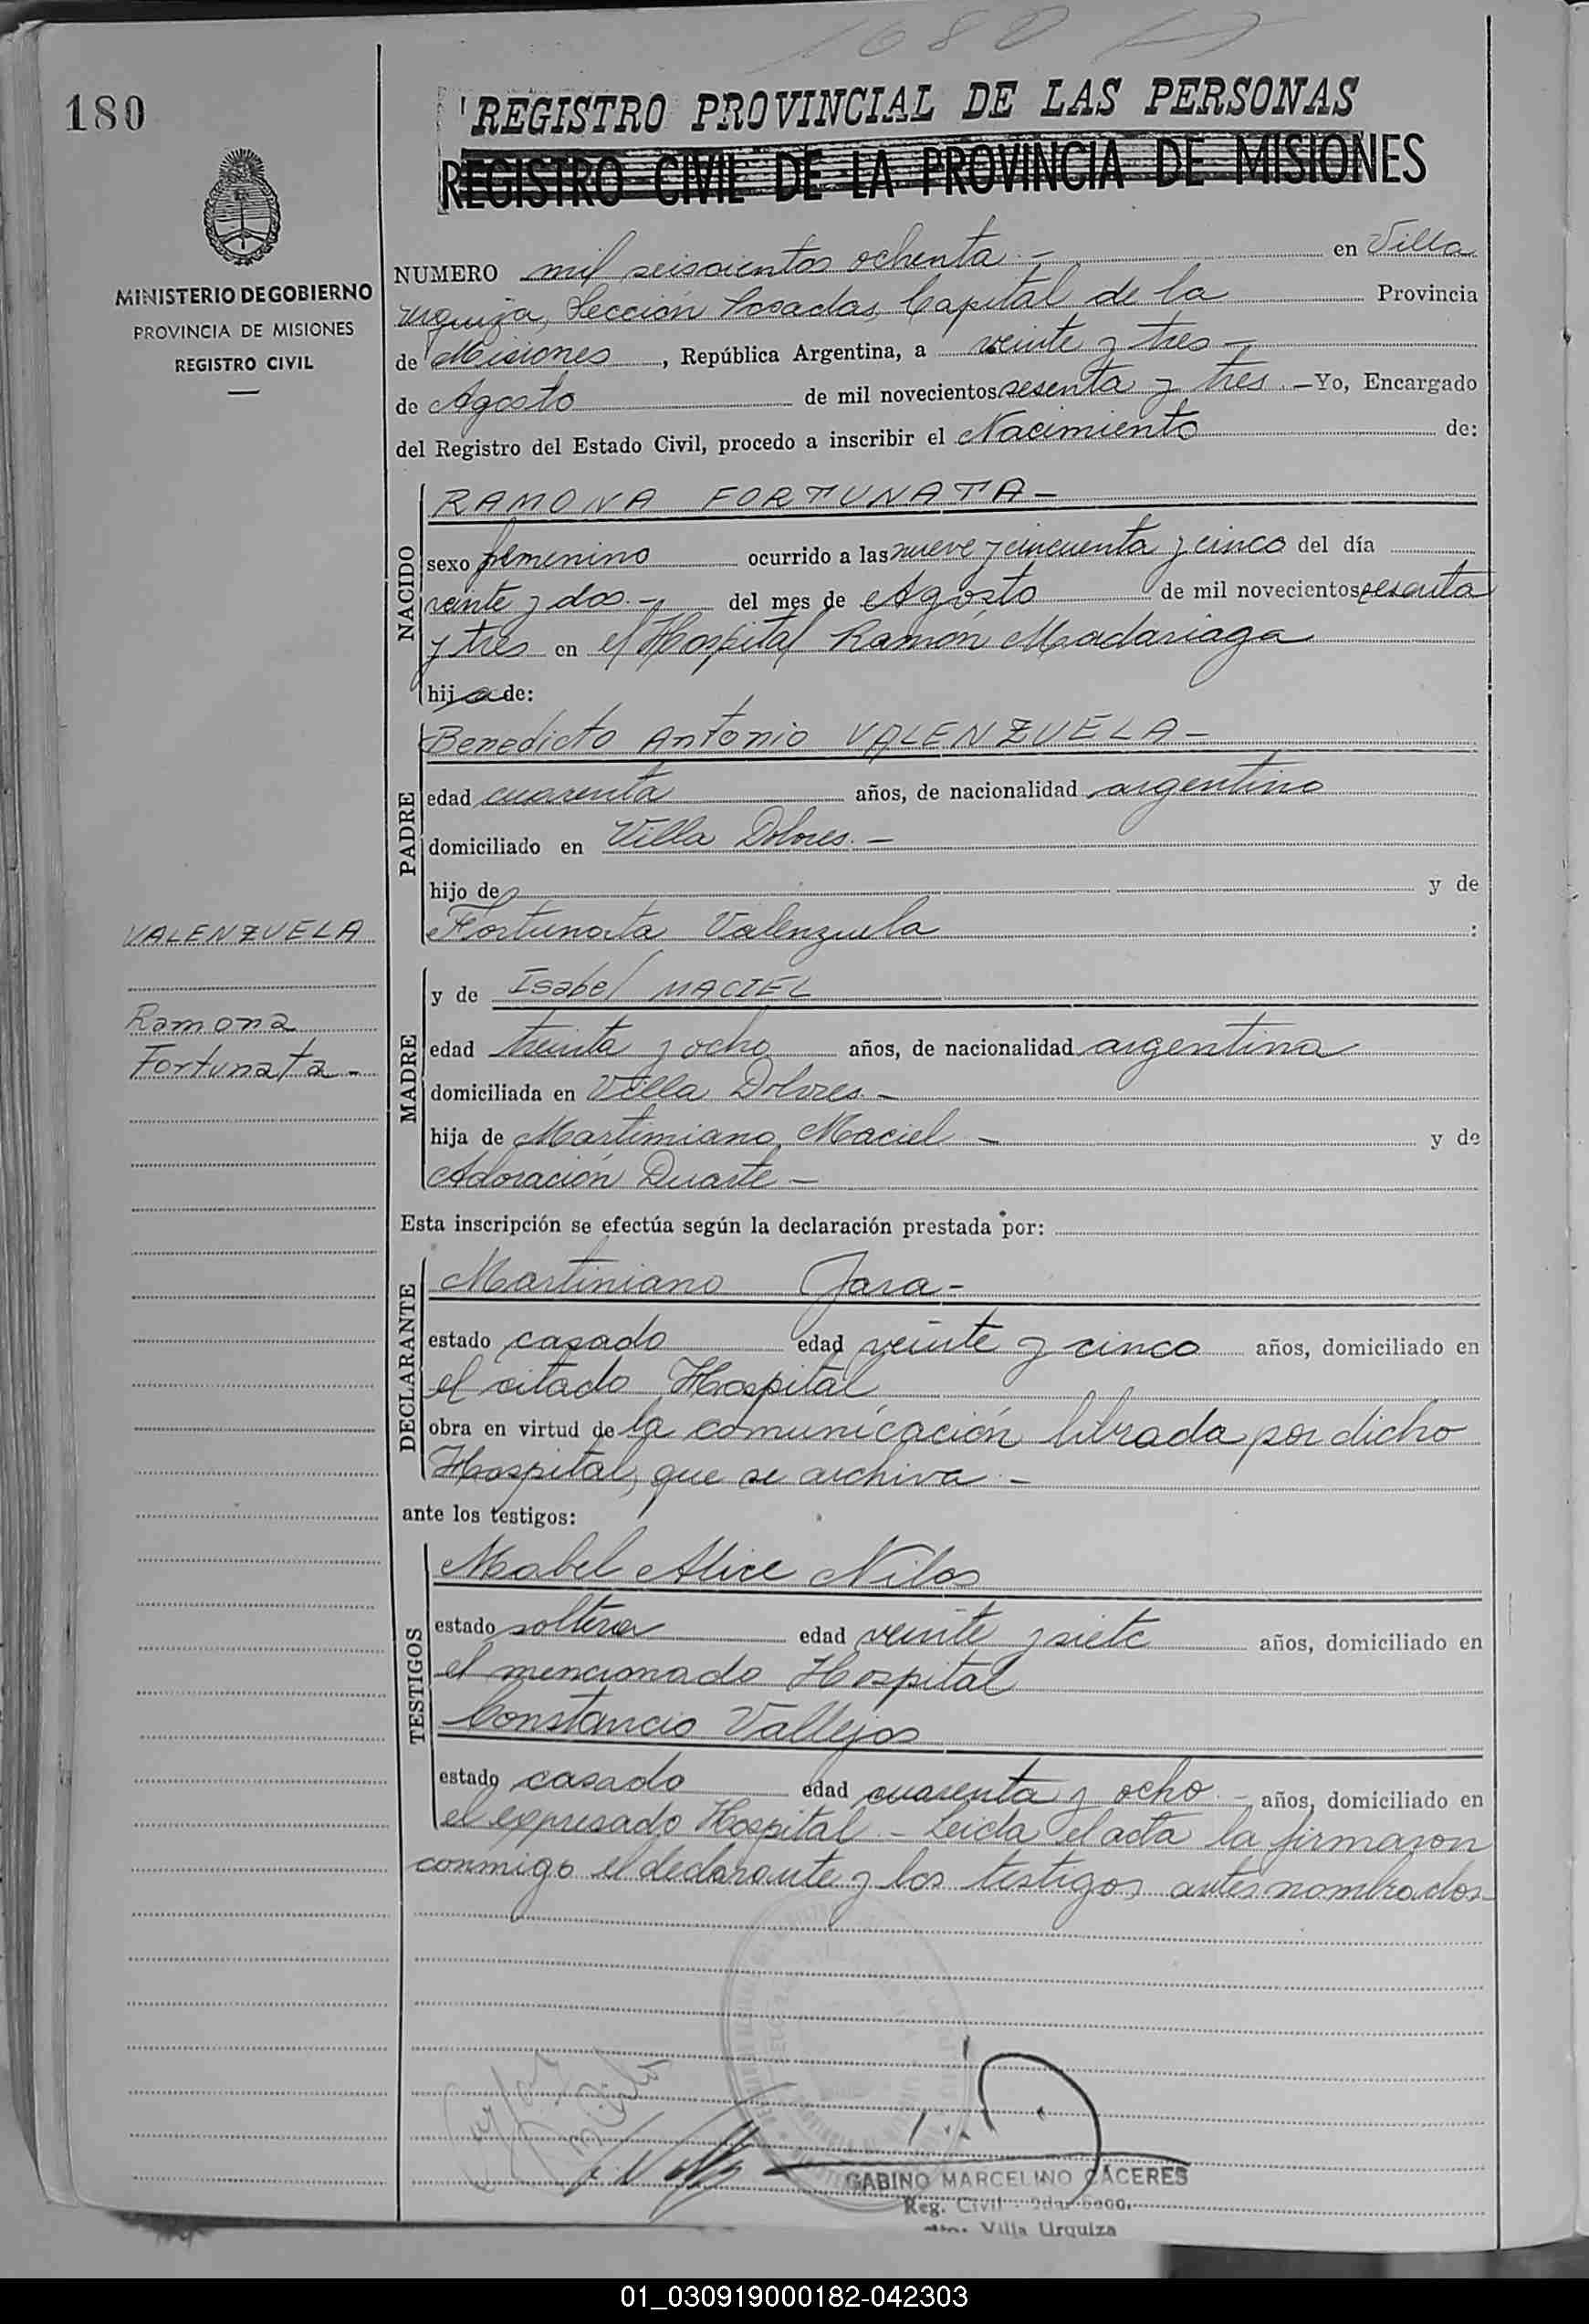 1680
180
REGISTRO PROVINCIAL DE LAS PERSONAS
REGISTRO CIVIL DE LA PROVINCIA DE MISIONES
MINISTERIO DE GOBIERNO
PROVINCIA DE MISIONES
REGISTRO CIVIL
NUMERO mil seiscientos ochenta.- en Villa
Urquiza, Sección Posadas, Capital de la Provincia
de Misiones, República Argentina, a veinte y tres -
de Agosto de mil novecientos sesenta y tres.- Yo, Encargado
del Registro del Estado Civil, procedo a inscribir el Nacimiento de:
NACIDO
RAMONA FORTUNATA -
sexo femenino ocurrido a las nueve y cincuenta y cinco del día
veinte y dos.- del mes de Agosto de mil novecientos sesenta
y tres en el Hospital Ramón Madariaga
hija de:
PADRE
Benedicto Antonio VALENZUELA -
edad cuarenta años, de nacionalidad argentino
domiciliado en Villa Dolores.-
hijo de y de
Fortunata Valenzuela :
VALENZUELA
Ramona
Fortunata -
MADRE
y de Isabel MACIEL
edad treinta y ocho años, de nacionalidad argentina
domiciliada en Villa Dolores.-
hija de Martimiano Maciel - y de
Adoración Duarte -
Esta inscripción se efectúa según la declaración prestada por:
DECLARANTE
Martiniano Jara -
estado casado edad veinte y cinco años, domiciliado en
el citado Hospital
obra en virtud de la comunicación librada por dicho
Hospital, que se archiva.-
ante los testigos:
TESTIGOS
Mabel Alice Nilos
estado soltera edad veinte y siete años, domiciliado en
el mencionado Hospital
Constancio Vallejos
estado casado edad cuarenta y ocho.- años, domiciliado en
el expresado Hospital.- Leida el acta la firmaron
conmigo el declarante y los testigos antes nombrados-
GABINO MARCELINO CACERES
Reg. Civil
Villa Urquiza
01_030919000182-042303